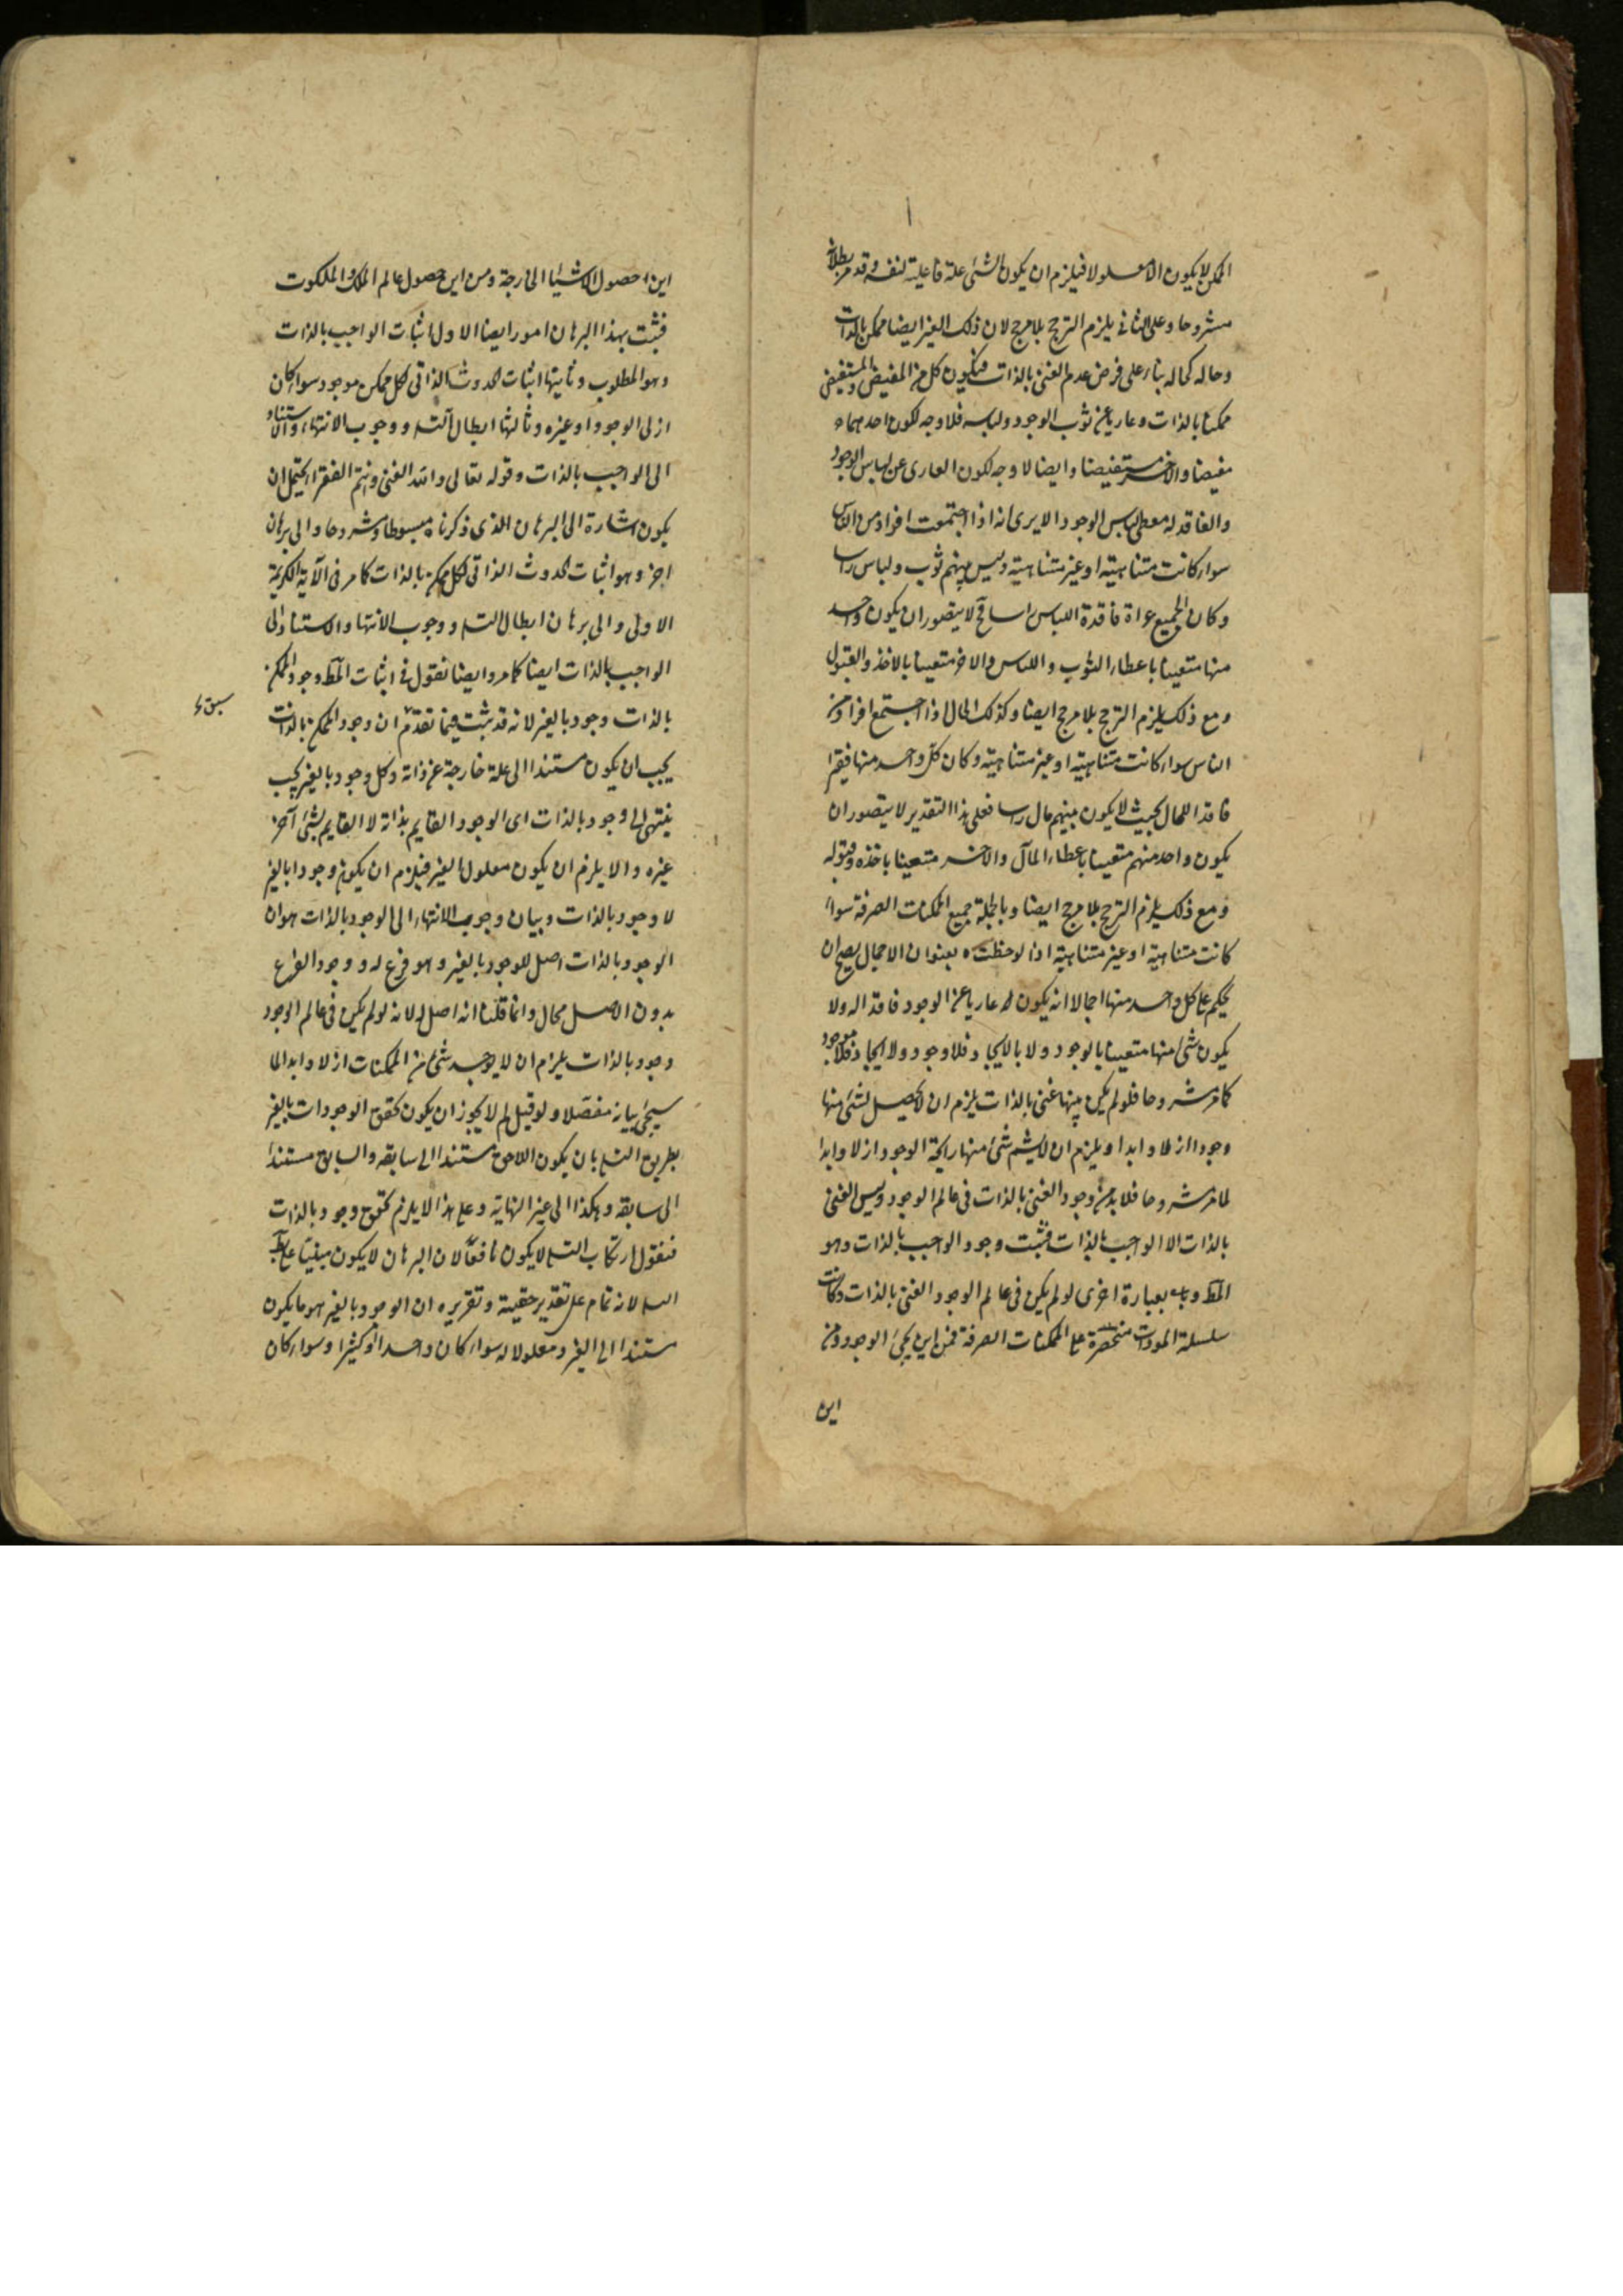 الممكن لا يكون الا معلولا فيلزم ان يكون الشئ علة فاعلية لنفسه وقد مر بطلانه
مشروحا وعلى الثانى يلزم الترجح بلا مرجح لان ذلك الغير ايضا ممكن بالذات
وحاله كحاله بناء على فرض عدم الغنى بالذات فيكون كل من المفيض والمستفيض
ممكنا بالذات وعاريا عن ثوب الوجود ولباسه فلا وجه لكون احدهما
مفيضا والاخر مستفيضا وايضا لا وجه لكون العارى عن لباس الوجود
والفاقد له معطى لباس الوجود الا يرى انه اذا اجتمعت افراد من الناس
سواء كانت متناهية او غير متناهية وليس بينهم ثوب ولباس راسا
وكان الجميع عراة فاقدة اللباس راسا فح لا يتصور ان يكون واحد
منها متعينا باعطاء الثوب واللباس والاخر متعينا بالاخذ والقبول
ومع ذلك يلزم الترجح بلا مرجح ايضا وكذلك الحال اذا اجتمع افراد من
الناس سواء كانت متناهية او غير متناهية وكان كل واحد منها فقيرا
فاقدا للمال بحيث لا يكون بينهم مال راسا فعلى هذا التقدير لا يتصور ان
يكون واحد منهم متعينا باعطاء المال والاخر متعينا باخذه وقبوله
ومع ذلك يلزم الترجح بلا مرجح ايضا وبالجملة جميع الممكنات الصرفة سواء
كانت متناهية او غير متناهية اذا لوحظت بعنوان الاجمال يصح ان
يحكم على كل واحد منها اجمالا انه يكون عاريا عن الوجود فاقدا له ولا
يكون شئ منها متعينا بالوجود ولا بالايجاد فلا وجود ولا ايجاد فلا موجود
كما مر مشروحا فلو لم يكن بينها غنى بالذات يلزم ان لا يحصل لشئ منها
وجود ازلا وابدا ويلزم ان لا يشم شئ منها رايحة الوجود ازلا وابدا
لما مر مشروحا فلا بد من وجود الغنى بالذات فى عالم الوجود وليس الغنى
بالذات الا الواجب بالذات فثبت وجود الواجب بالذات وهو
المط وبعبارة اخرى لو لم يكن فى عالم الوجود الغنى بالذات وكانت
سلسلة الموجودات منحصرة على الممكنات الصرفة فمن اين يجئ الوجود ومن
اين
اين حصول الاشياء الخارجة ومن اين حصول عالم الملك والملكوت
فثبت بهذا البرهان امور ايضا الاول اثبات الواجب بالذات
وهو المطلوب وثانيتها اثبات الحدوث الذاتى لكل ممكن موجود سواء كان
ازلى الوجود او غيره وثالثها ابطال التسه ووجوب الانتهاء والاستناد
الى الواجب بالذات وقوله تعالى والله الغنى وانتم الفقراء يحتمل ان
يكون اشارة الى البرهان الذى ذكرناه مبسوطا ومشروحا والى برهان
اخر وهو اثبات الحدوث الذاتى لكل ممكن بالذات كما مر فى الآية الكريمة
الاولى والى برهان ابطال التسه ووجوب الانتهاء والاستناد الى
الواجب بالذات ايضا كما مر وايضا نقول فى اثبات المط وجود الممكن
بالذات وجود بالغير لانه قد ثبت فيما تقدم ان وجود الممكن بالذات
يجب ان يكون مستندا الى علة خارجة عن ذاته وكل وجود بالغير يجب
ينتهى الى وجود بالذات اى الوجود القايم بذاته لا القايم بشئ آخر
غيره والا يلزم ان يكون معلول الغير فيلزم ان يكون وجودا بالغير
لا وجود بالذات وبيان وجوب الانتهاء الى الوجود بالذات هو ان
الوجود بالذات اصل للوجود بالغير وهو فرع له ووجود الفرع
بدون الاصل محال وانما قلنا انه اصل له لانه لو لم يكن فى عالم الوجود
وجود بالذات يلزم ان لا يوجد شئ من الممكنات ازلا وابدا لما
سيجئ بيانه مفصلا ولو قيل لم لا يجوز ان يكون تحقق الوجودات بالغير
بطريق التسه بان يكون اللاحق مستندا الى سابقه والسابق مستندا
الى سابقه وهكذا الى غير النهاية وعلى هذا لا يلزم تحقق وجود بالذات
فنقول ارتكاب التسه لا يكون نافعا لان البرهان لا يكون مبنيا على بط
التسه لانه تمام على تقدير حقيته وتقريره ان الوجود بالغير هو ما يكون
مستندا الى الغير ومعلولا له سواء كان واحدا او كثيرا وسواء كان